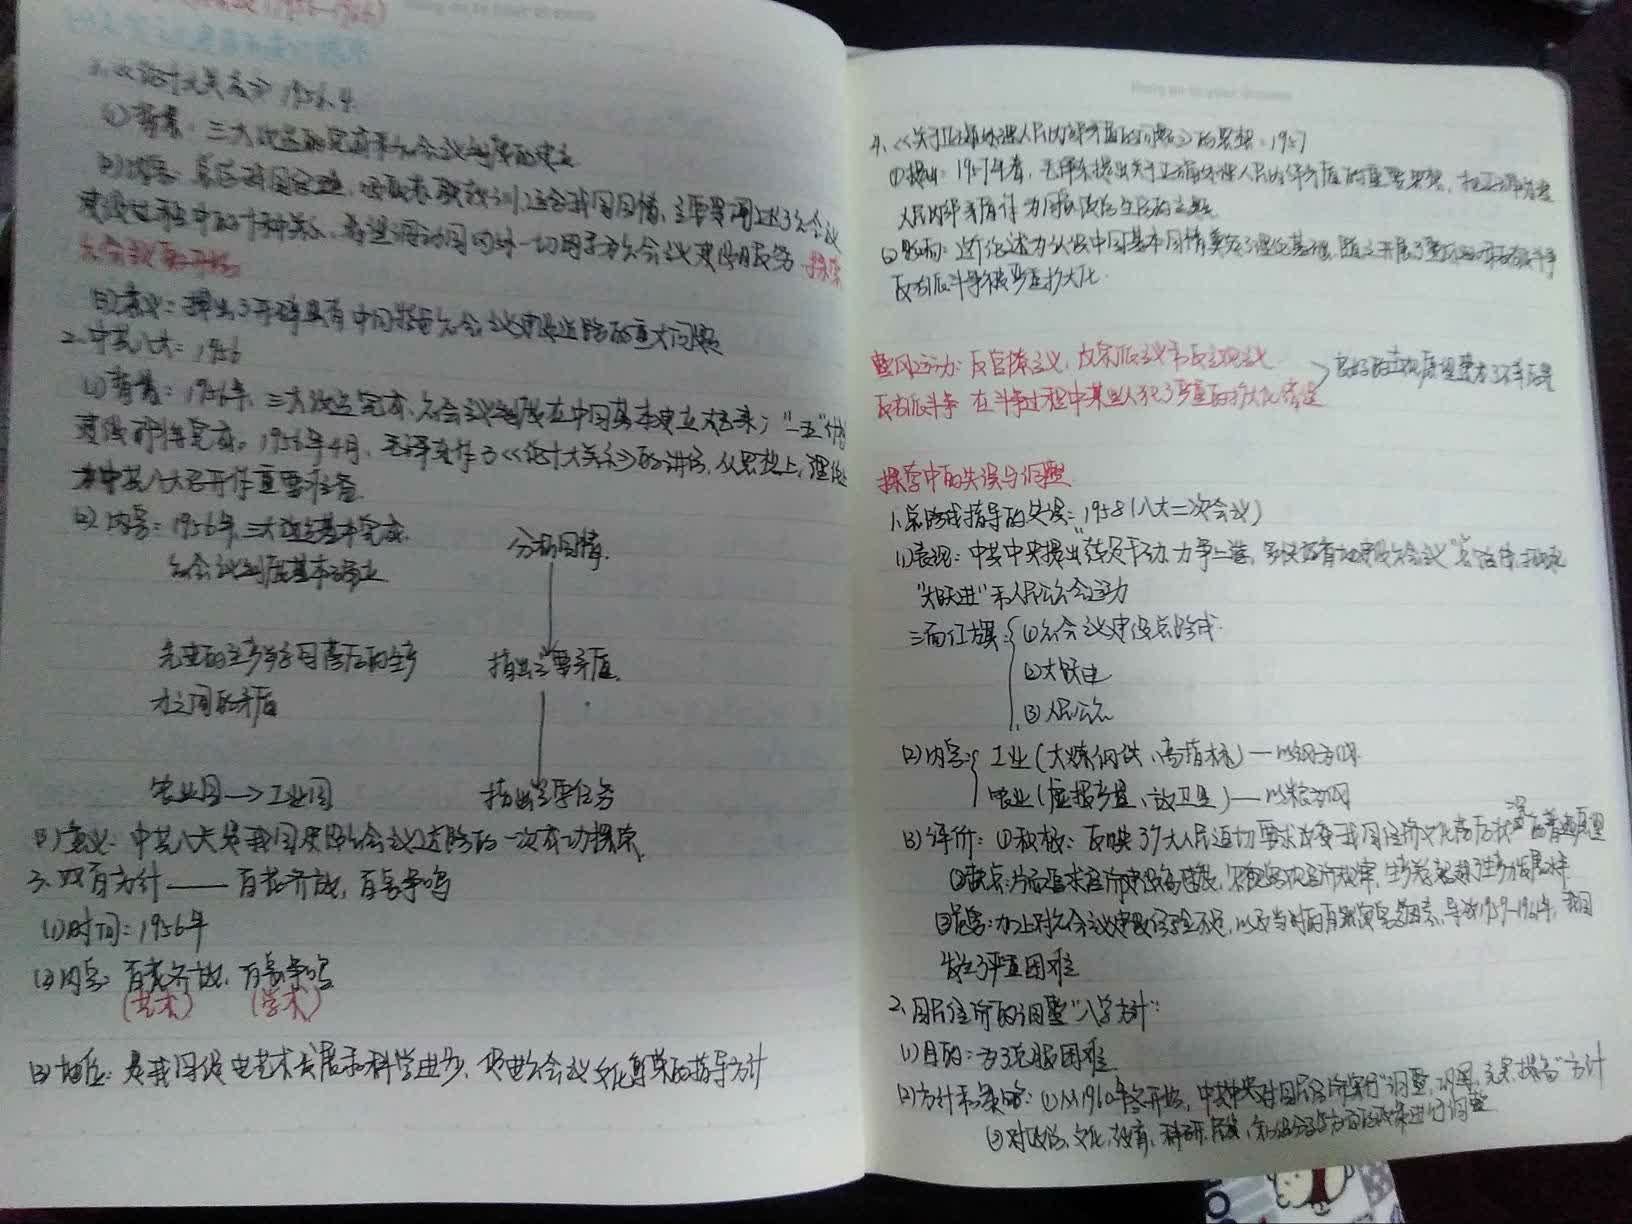 1.《论十大关系》1956.4
(1)背景：三大改造的完成和社会主义制度的建立
(2)内容：总结我国经验，吸取苏联教训，适合我国国情，主要是阐述了社会主义
建设过程中的十种关系，希望调动国内外一切因素为社会主义建设服务 探索
社会主义的开始
(3)意义：提出了开辟具有中国特色社会主义建设道路的重大问题
2.中共八大：1956
(1)背景：1956年，三大改造完成，社会主义制度在中国基本建立起来；“一五”计划
建设即将完成。1956年4月，毛泽东作了《论十大关系》的讲话，从思想上，理论上
为中共八大召开作重要准备.
(2)内容：1956年，三大改造基本完成.
分析国情.
社会主义制度基本确立
先进的生产关系同落后的生产
指出主要矛盾.
力之间的矛盾
农业国→工业国
指出主要任务
(3)意义：中共八大是我国建设社会主义道路的一次成功探索.
3.双百方针——百花齐放，百家争鸣
(1)时间：1956年
(2)内容：百花齐放，百家争鸣
(艺术) (学术)
(3)地位：是我国促进艺术发展和科学进步，促进社会主义文化繁荣的指导方针
4.《关于正确处理人民内部矛盾的问题》的思想：1957
①提出：1957年春，毛泽东提出关于正确处理人民内部矛盾的重要思想，把正确处理
人民内部矛盾作为国家政治生活的主题
②影响：这个论述为认识中国基本国情奠定了理论基础，随之开展了整风运动和反右派斗争
反右派斗争被严重扩大化.
整风运动：反官僚主义，反宗派主义和反主观主义
反右派斗争 在斗争过程中某些人犯了严重的扩大化错误
探索中的失误与调整
1.总路线指导的失误：1958(八大二次会议)
(1)表现：中共中央提出“鼓足干劲、力争上游，多快好省地建设社会主义”总路线，
“大跃进”和人民公社会运动
三面红旗：①社会主义建设总路线.
②大跃进
③人民公社
(2)内容：工业(大炼钢铁、高指标)—以钢为纲.
农业(虚报产量、放卫星)—以粮为纲
(3)评价：①积极：反映了广大人民迫切要求改变我国经济文化落后状况的普遍愿望
②缺点：片面追求经济建设的高速度，忽视客观经济规律，
③危害：加上对社会主义建设经验不足，以及当时的自然灾害等因素，导致1959-1961年，我国
发生了严重困难
2.国民经济的调整“八字方针”：
(1)目的：为了克服困难
(2)方针和策略：①从1960年冬开始，中共中央对国民经济实行“调整、巩固、充实、提高”方针
②对政治、文化、教育、科研、民族、知识分子等方面的政策进行调整